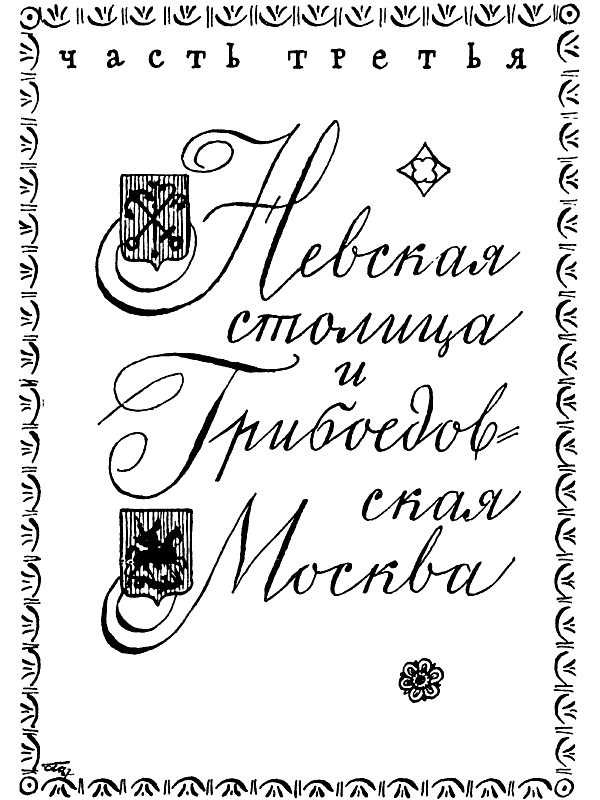 часть третья
Невская
столица
и
Грибоедов=
ская
Москва